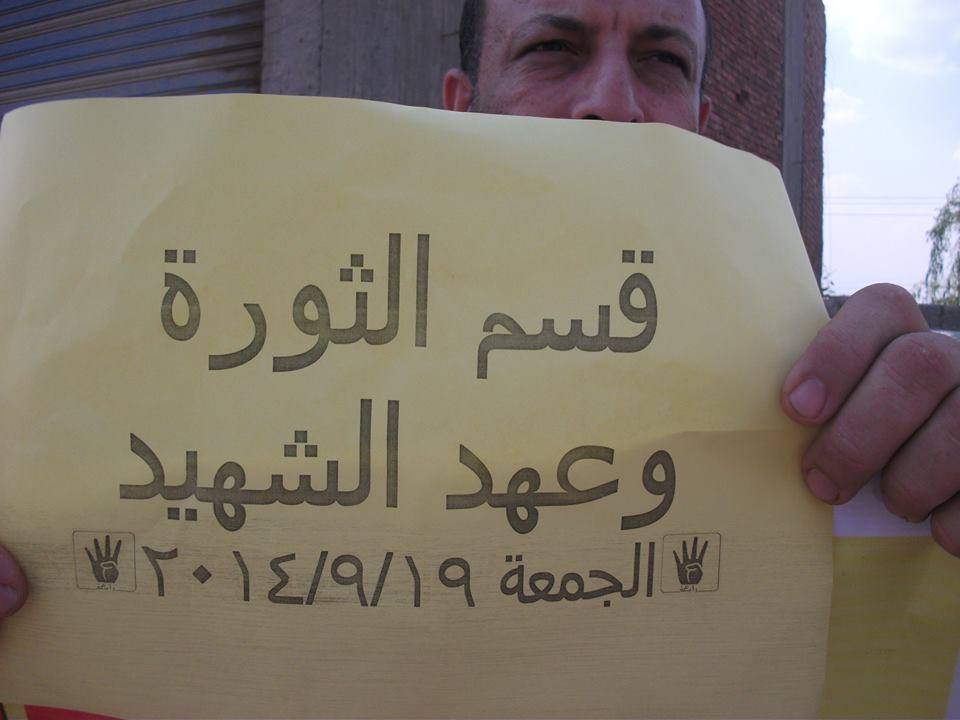 قسم الثورة
وعهد الشهيد
الجمعة ٢٠١٤/٩/١٩